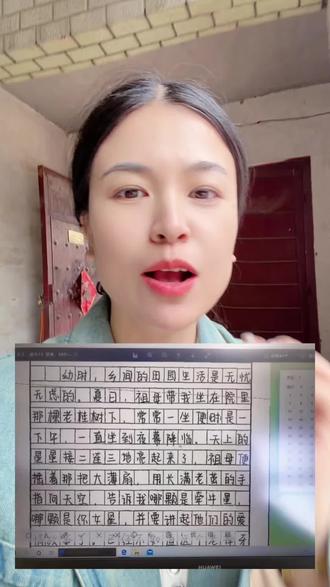 幼时，乡间的田园生活是无忧
无虑的。夏日，祖母带我坐在院里
那棵老桂树下，常常一坐便时是一
下午，一直坐到夜幕降临。天上的
星星接二连三地亮起来了，祖母便
摇着那把大蒲扇，用长满老茧的手
指向天空，告诉我哪颗是牵牛星，
哪颗是织女星，并要讲起他们的爱
HUAWEI